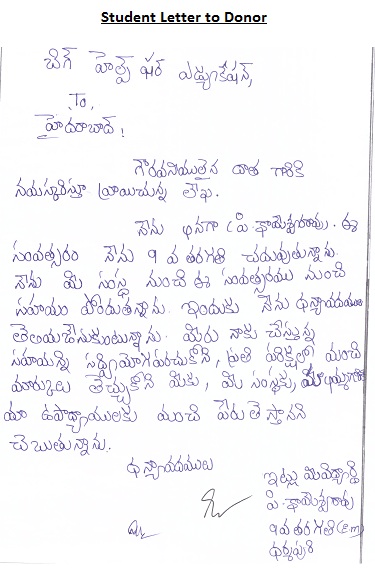 Student Letter to Donor
బిగ్ హెల్ప్ ఫర్ ఎడ్యుకేషన్,
To,
హైదరాబాద్!
గౌరవనియులైన దాత గారికి
నమస్కరిస్తూ వ్రాయుచున్న లేఖ.
నేను అనగా (పి. ఈ
సంవత్సరం నేను 9 వ తరగతి చదువుతున్నాను.
నేను మి సంస్థ నుంచి ఈ సంవత్సరము నుంచి
సహాయం పొందుతన్నాను. ఇందుకు నేను ధన్యావదములు
తెలియచేసుకుంటున్నాను. మీరు నాకు చేస్తున్న
సహయన్ని సద్వినియోగపరచుకొని, ప్రతి పరిక్షలో మంచి
మార్కులు తెచ్చుకొని మీకు, మీ సంస్థకు,
మా ఉపాధ్యాయులకు మంచి పేరు తెస్తానని
చెబుతున్నాను.
ధన్యావదములు
ఇట్లు మివిద్యార్థి
పి.
9వ తరగతి (E.m)
ధర్మపురి